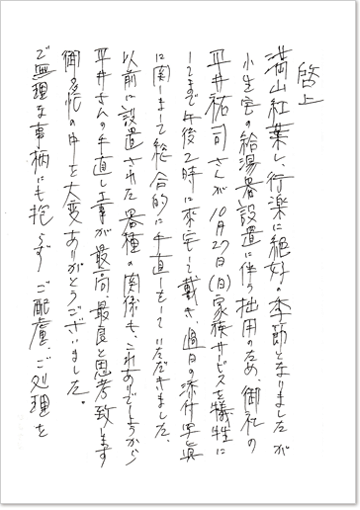 啓上
満山紅葉し、行楽に絶好の季節となりましたが
小生宅の給湯器設置に伴う拙用のため、御社の
平井祐司さんが10月27日(日)家族サービスを犠牲に
してまで午後2時に来宅して戴き、過日の添付写真
に関しまして総合的に手直しをしていただきました。
以前に設置された器種の関係も、これありでしょうから
平井さんの手直し工事が最高、最良と思考致します
御多忙の中を大変ありがとうございました。
ご無理な事柄にも抱らず、ご配慮、ご処理を